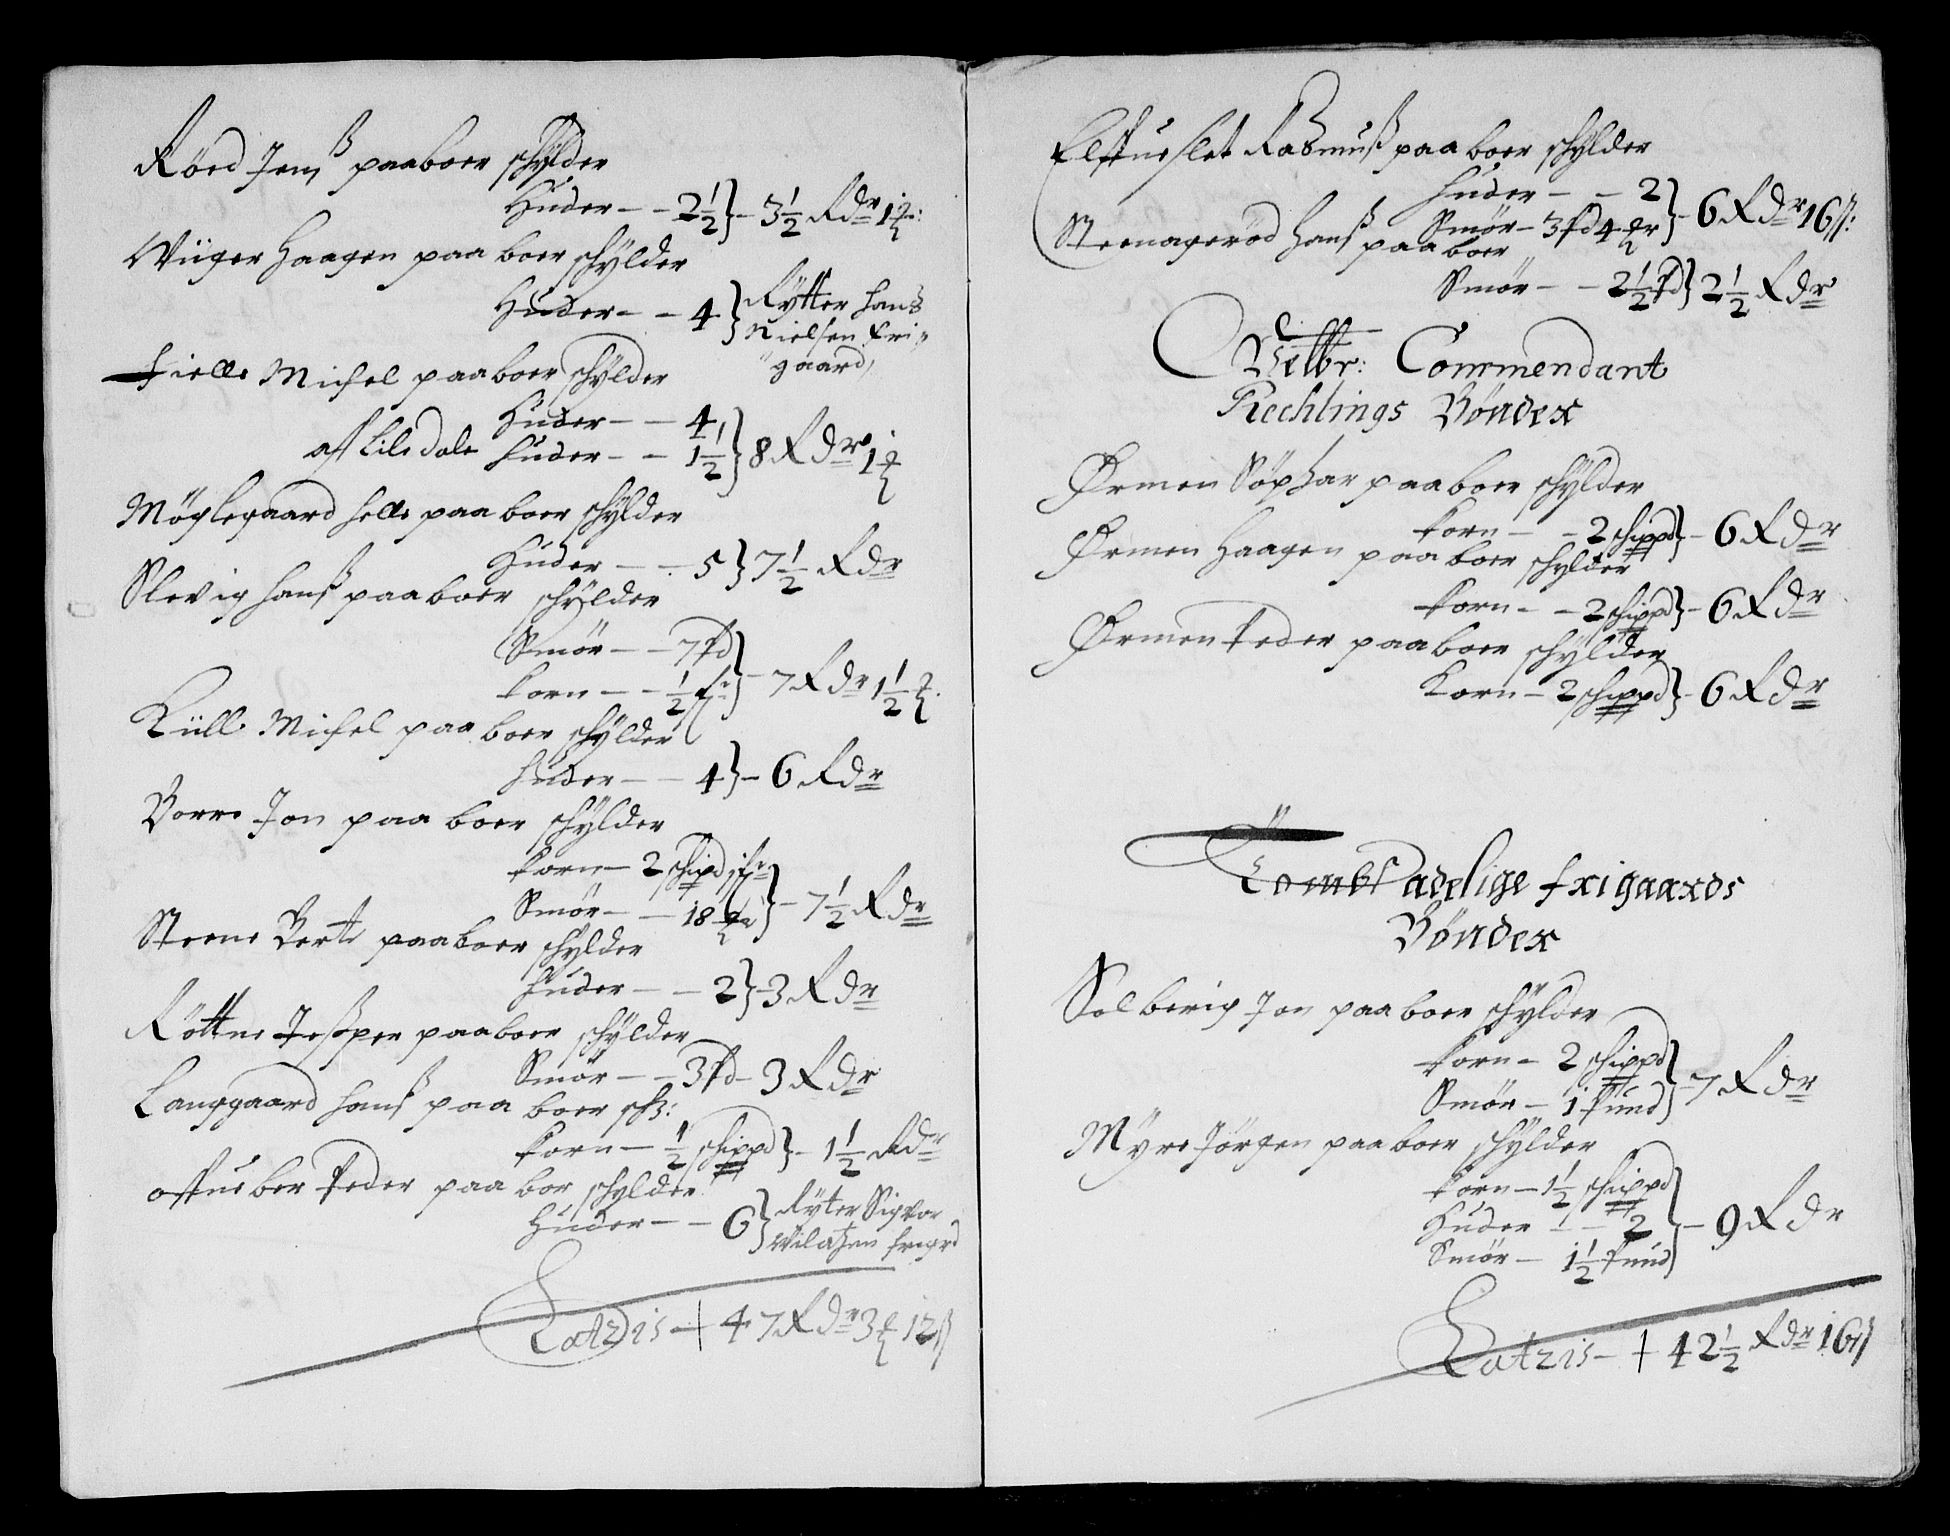 Röed Jenß paaboer schÿlder
Huder - - 2½ } - 3½ Rdr 1 ꝗ:
Wiiger Haagen paaboer schÿlder
Huder - - 4 } Rÿtter Hans
Nielsen fri
gaard,
Fielle Michel paaboer schÿlder
Huder - - 4
af Lile dale Huder - - 1½ } 8 Rdr 1 ꝗ
Möglegaard Helle paaboer schÿlder
Huder - - 5 } 7½ Rdr
Slevig Hanß paaboer schÿlder
Smör - - 7 Pd
Korn - - ½ } - 7 Rdr 1½ ꝗ.
Küll Michel paaboer schÿlder
Huder - - 4 } - 6 Rdr
Borre Jon paa boer schÿlder
Korn - 2 schipd
Smör - - 18 } - 7½ Rdr
Steene Berte paaboer schÿlder
Huder - - 2 } - 3 Rdr
Röttne Jeßper paaboer schÿlder
Smör - - 3 Pd - 3 Rdr
Langgaard Hanß paa boer sch:
Korn - ½ schippd } - 1½ Rdr
Peder paa bor schylder
Huder - - 6 } Rÿter Sigvor
frigrd
Latzis - + 47 Rdr 3 ꝗ 12 ß
Rasmuß paaboer schÿlder
Huder - - 2
Smör - 3 Pd 4 } - 6 Rdr 16 ß:
Steenageröd Hanß paa boer
Smör - - 2½ Pd } 2½ Rdr
Welbr: Commendant
Rechlings Bönder
Örmen paaboer schÿlder
Korn - - 2 schippd } - 6 Rdr
Örmen Haagen paa boer schylder
Korn - - 2 schippd } - 6 Rdr
Örmen Peder paaboer schÿlder
Korn - 2 schippd } - 6 Rdr
Tombs adelige frigaards
Bönder
Solberig Jon paaboer schÿlder
Korn - 2 schippd
Smör - 1 Pund } - 7 Rdr
Mÿre Jörgen paaboer schÿlder
Korn - 1½ schippd
Huder - - 2 } - 9 Rdr
Smör - 1½ Pund
Latzis - + 42½ Rdr 16 ß